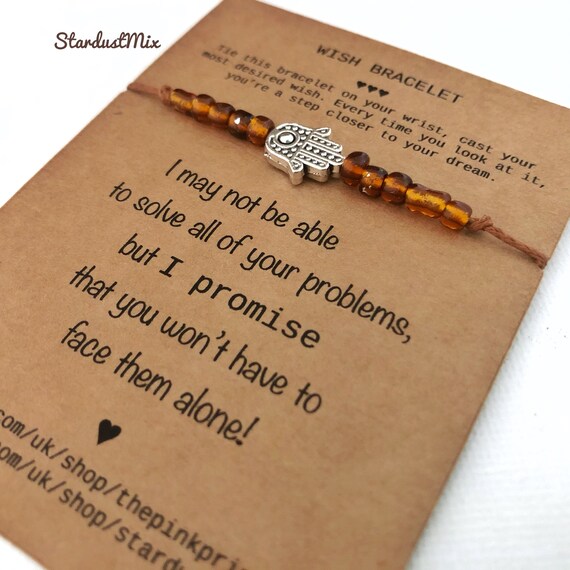 StardustMix
WISH BRACELET
♥♥♥
Tie this bracelet on your wrist, cast your
most desired wish. Every time you look at it,
you're a step closer to your dream.
I may not be able
to solve all of your problems,
but I promise
that you won't have to
face them alone!
♥
.com/uk/shop/thepinkpri
com/uk/shop/stardu